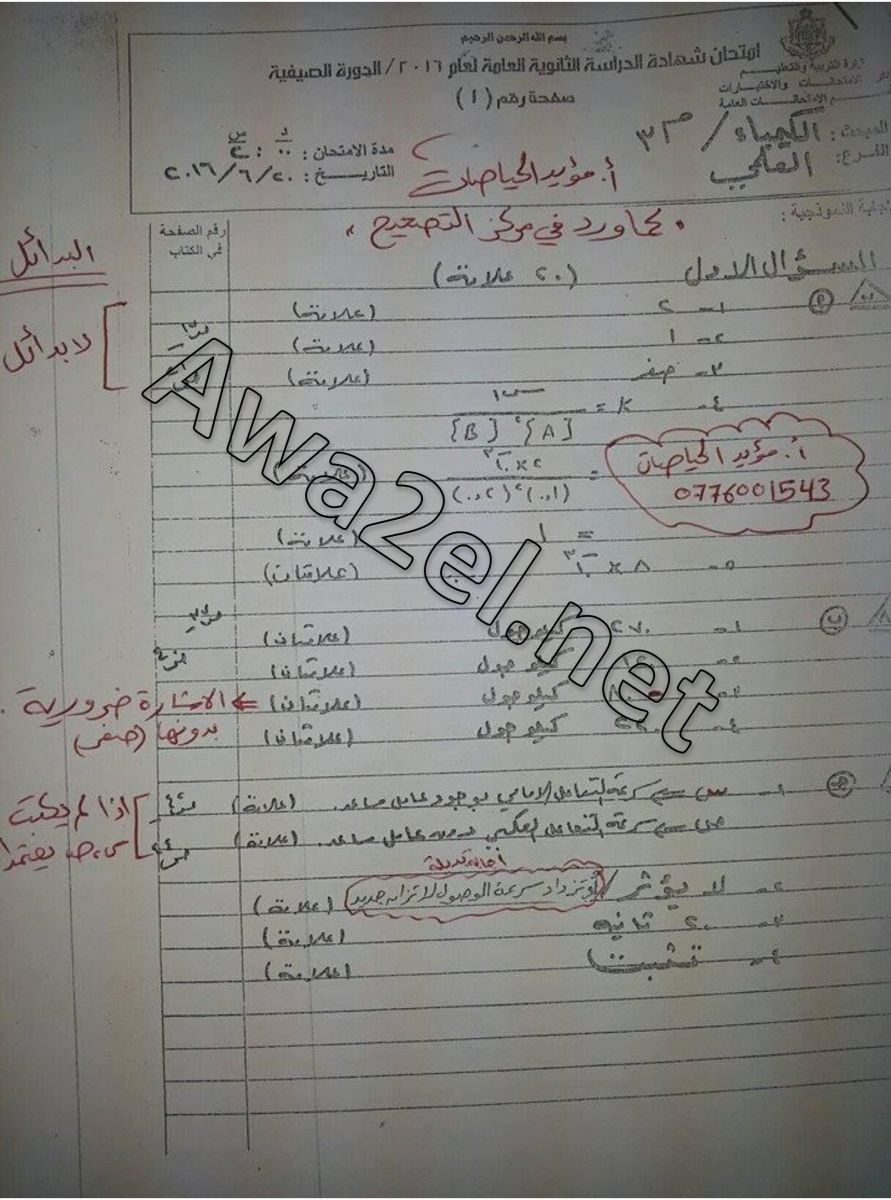 بسم الله الرحمن الرحيم
امتحان شهادة الدراسة الثانوية العامة لعام ٢٠١٦ / الدورة الصيفية
صفحة رقم (١)
وزارة التربية والتعليم
الامتحانات والاختبارات
الامتحانات العامة
المبحث: الكيمياء / م٣
الفرع: العلمي
مدة الامتحان: ٠٠ : ٢
د س
التاريخ: ٢٠١٦/٦/٢٠
أ. مؤيد الحياصات
الإجابة النموذجية:
" كما ورد في مركز التصحيح "
رقم الصفحة في الكتاب
البدائل
السؤال الاول (٢٠ علامة)
١- ٢ (علامة)
٢- ١ (علامة)
لا بدائل
٣- صفر (علامة)
٤- K = س / [A]² [B]
= ٢ × ١٠⁻³ / (٠,١)² (٠,٢) (علامة)
أ. مؤيد الحياصات
0776001543
= ١ (علامة)
٥- ٨ × ١٠⁻³ (علامتان)
ب
١- ٢٧٠ كيلو جول (علامتان)
٢- كيلو جول (علامتان)
٣- كيلو جول (علامتان) ⇐ الاشارة ضرورية
بدونها (صفر)
٤- كيلو جول (علامتان)
ج
١- س سرعة التفاعل الامامي بوجود عامل مساعد. (علامة)
ص سرعة التفاعل العكسي بدون عامل مساعد. (علامة)
اذا لم يكتب
س، ص يعتمد
٢- لا يؤثر / أو تزداد سرعة الوصول لاتزان جديد (علامة)
إجابة بديلة
٣- ٢٠ ثانية (علامة)
٤- تثبت (علامة)
Awa2el.net